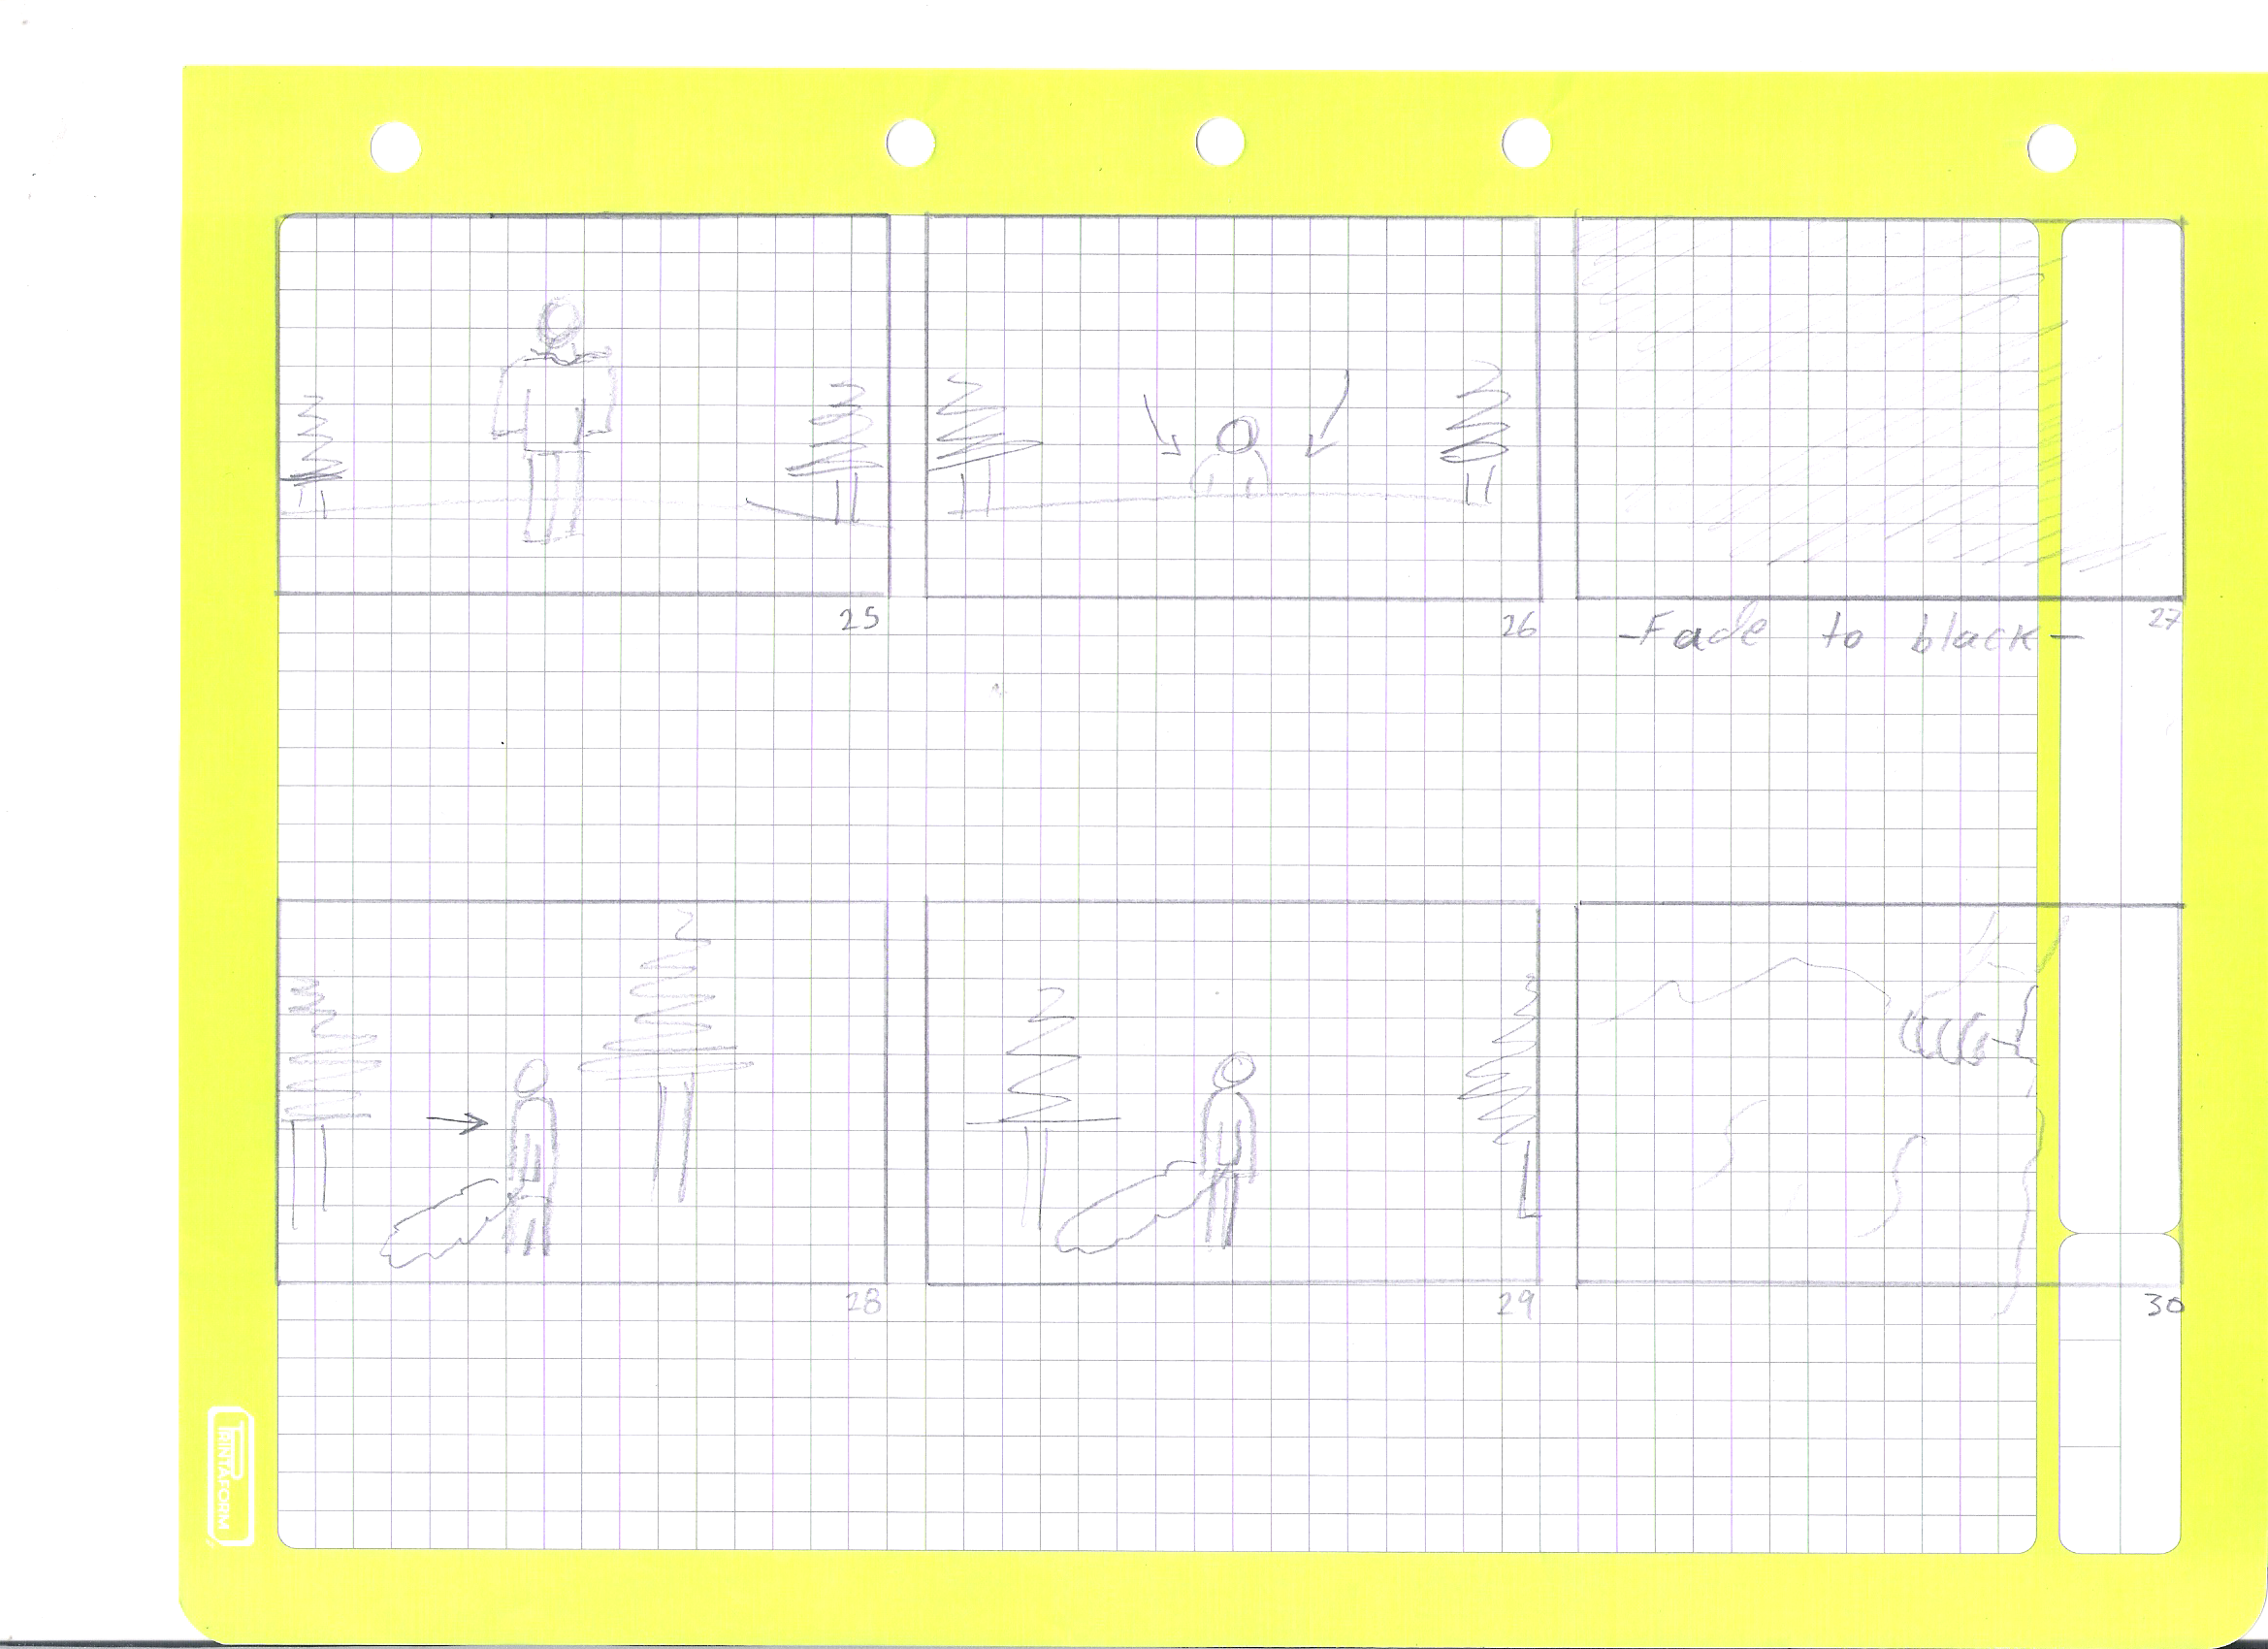 25
26
27
-Fade to black-
28
29
30
PRINTAFORM